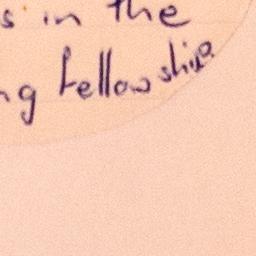 s in the
ng fellowship